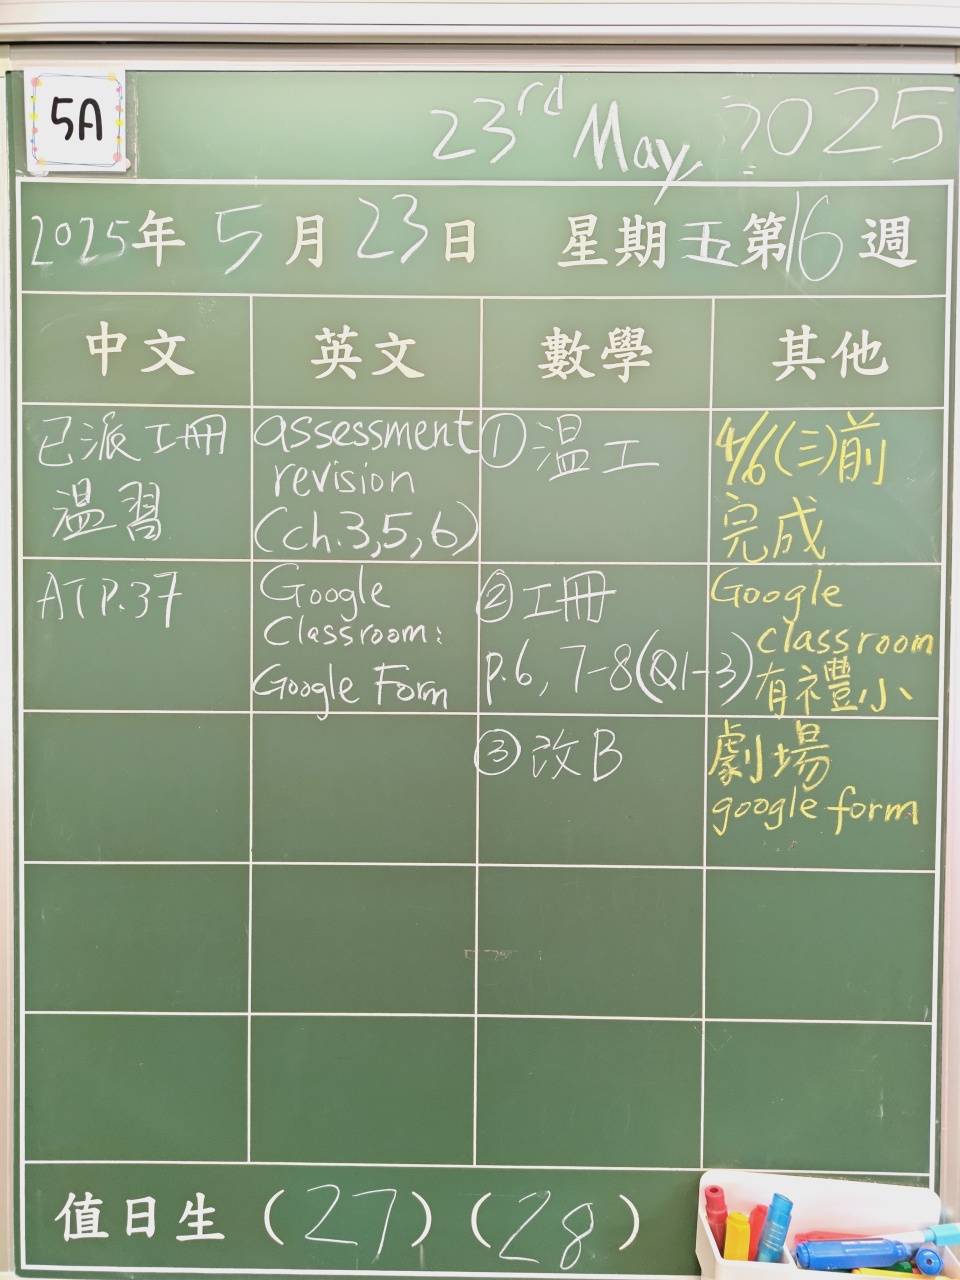 5A
23rd May, 2025
2025年 5月 23日 星期五 第16週
中文
英文
數學
其他
已派工冊
温習
assessment
revision
(ch.3,5,6)
①温工
4/6(三)前
完成
AT P.37
Google
Classroom:
Google Form
②工冊
p.6, 7-8(Q1-3)
Google
classroom
有禮小
③改B
劇場
google form
值日生 (27) (28)